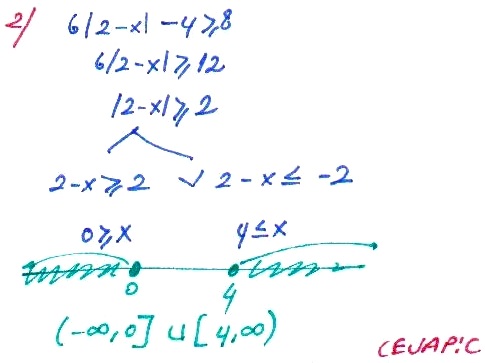 2/ 6|2-x| -4≥8
6|2-x|≥12
|2-x|≥2
2-x≥2 ∨ 2-x≤ -2
0≥x 4≤x
0 4
(-∞,0] ∪ [4,∞)
CEVAP:C